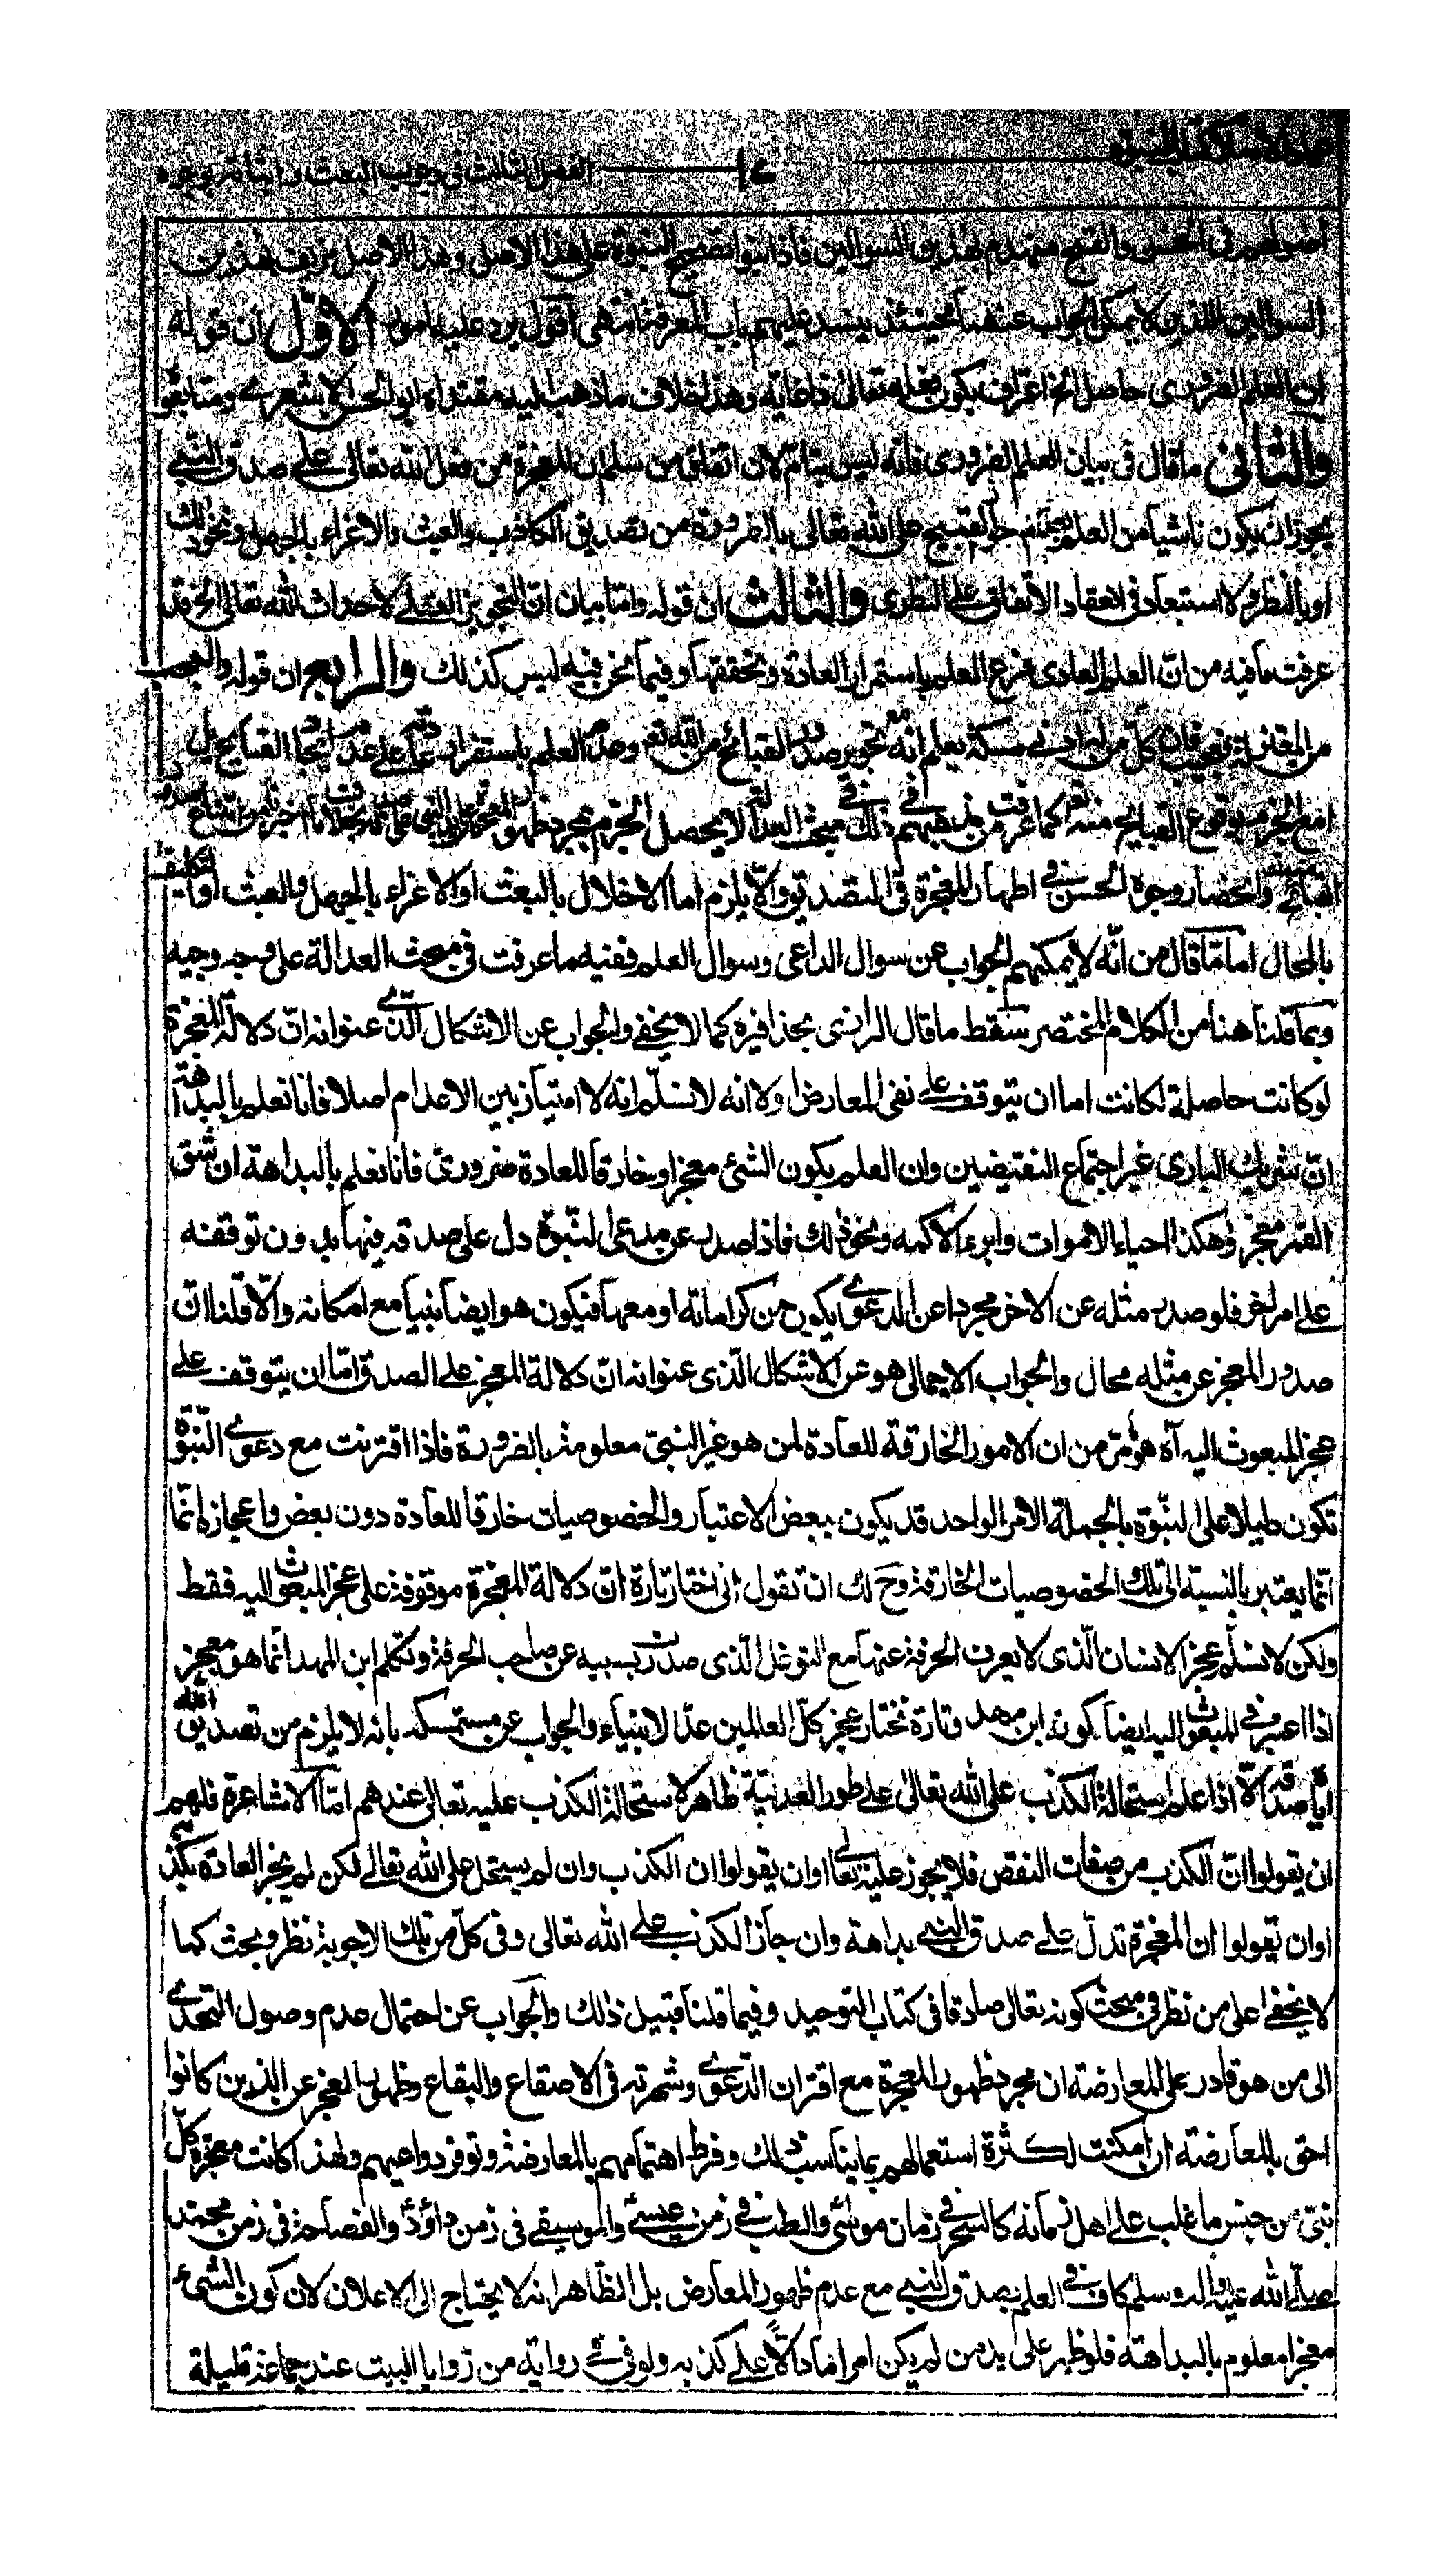 عماد الاسلام كتاب النبوة
الفصل الثالث في وجوب البعث واثباته بوجوه
اصولهم في الحسن والقبح منهدم بهذين السوالين فاذا بنوا تصحيح النبوة على هذا الاصل وهذا الاصل مزيف بهذين
السوالين اللذين لا يمكن الجواب عنهما فحينئذ ينسد عليهم باب المعرفة انتهى اقول يرد عليه امور الاول ان قوله
ان العلم الضروري حاصل الخ اعتراف بكون فعله تعالى ذا غاية وهذا خلاف ما ذهب اليه مقتداه ابو الحسن الاشعري ومتابعوه
والثاني ما قال في بيان العلم الضروري فانه ليس بتام لان اتفاق من سلم ان المعجزة من فعل الله تعالى على صدق النبي
يجوز ان يكون ناشيا من العلم القبيح على الله تعالى بالضرورة من تصديق الكاذب والعبث والاغراء بالجهل ونحو ذلك
او بالنظر ولا استبعاد في انعقاد الاتفاق على النظري والثالث ان قوله واما بيان ان التجويز العقلي لاحداث الله تعالى الخ قد
عرفت ما فيه من ان العلم العادي فرع العلم باستمرار العادة وتحققها وفيما نحن فيه ليس كذلك والرابع ان قوله والعجب
من المعتزلة فعجيب فان كل من له ادنى مسكة يعلم انه تجويز صدور القبائح من الله تعم وعدم العلم باستقرار
مع الجزم بوقوع القبايح منه تعم كما عرفت من مذهبهم في ذلك في مبحث العدل لا يحصل الجزم بمجرد ظهور
القبائح وانحصار وجوه الحسن في اظهار المعجزة في التصديق والا يلزم اما الاخلال بالبعث او الاغراء بالجهل والعبث او التكليف
بالمحال اما ما قال من انه لا يمكنهم الجواب عن سوال الداعي وسوال العلم ففيه ما عرفت في مبحث العدالة على وجه وجيه
وبما قلنا هنا من الكلام المختصر سقط ما قال الرازي بحذافيره كما لا يخفى والجواب عن الاشكال الذي عنوانه ان دلالة المعجزة
لو كانت حاصلة لكانت اما ان تتوقف على نفي المعارض اولا انه لا نسلم انه لا امتياز بين الاعدام اصلا فانا نعلم بالبداهة
ان شريك الباري غير اجتماع النقيضين وان العلم بكون الشئ معجزا وخارقا للعادة ضروري فانا نعلم بالبداهة ان شق
القمر معجز وهكذا احياء الاموات وابرء الاكمه ونحو ذلك فاذا صدر عن مدعى النبوة دل على صدقه فيها بدون توقفه
على امر اخر فلو صدر مثله عن الاخر مجردا عن الدعوى يكون من كراماته او معها فيكون هو ايضا نبيا مع امكانه والا قلنا ان
صدور المعجز عن مثله محال والجواب الاجمالي هو عن الاشكال الذي عنوانه ان دلالة المعجز على الصدق اما ان يتوقف على
عجز المبعوث اليه آه هو مر من ان الامور الخارقة للعادة لمن هو غير النبي معلومة بالضرورة فاذا اقترنت مع دعوى النبوة
تكون دليلا على النبوة بالجملة الامر الواحد قد يكون ببعض الاعتبار والخصوصيات خارقا للعادة دون بعض واعجازه انما
انما يعتبر بالنسبة الى تلك الخصوصيات الخارقة وح لك ان تقول انى اختار تارة ان دلالة المعجزة موقوفة على عجز المبعوث اليه فقط
ولكن لا نسلم عجز الانسان الذى لا يعرف الحرفة عنها مع التوغل الذى صدرت بسببه عن صاحب الحرفة وتكلم ابن المهد انما هو معجز
اذا اعتبر في المبعوث اليه ايضا كونه ابن مهد وتارة نختار عجز كل العالمين عدا الانبياء والجواب عن مستمسكه بانه لا يلزم من تصديق الله
اياه صدقه الا اذا علم استحالة الكذب على الله تعالى على طور العدلية ظاهر لاستحالة الكذب عليه تعالى عندهم اما الاشاعرة فلهم
ان يقولوا ان الكذب من صفات النقص فلا يجوز عليه تعالى او ان يقولوا ان الكذب وان لم يستحل على الله تعالى لكن لم يجر العادة بكذبه
او ان يقولوا ان المعجزة تدل على صدق النبي بداهة وان جاز الكذب على الله تعالى وفي كل من تلك الاجوبة نظر وبحث كما
لا يخفى على من نظر في مبحث كونه تعالى صادقا في كتاب التوحيد وفيما قلنا قبيل ذلك والجواب عن احتمال عدم وصول التحدى
الى من هو قادر على المعارضة ان مجرد ظهور المعجزة مع اقتران الدعوى وشهرته في الاصقاع والبقاع وظهور العجز عن الذين كانوا
احق بالمعارضة ان امكنت لكثرة استعمالهم بما يناسب ذلك وفرط اهتمامهم بالمعارضة وتوفر دواعيهم ولهذا كانت معجزة كل
نبي من جنس ما غلب على اهل زمانه كالسحر في زمان موسى والطب في زمن عيسى والموسيقى في زمن داؤد والفصاحة في زمن محمد
صلى الله عليه واله وسلم كاف في العلم بصدق النبي مع عدم ظهور المعارض بل الظاهر انه لا يحتاج الى الاعلان لان كون الشئ
معجزا معلوم بالبداهة فلو ظهر على يد من لم يكن امر اما دالا على كذبه ولو في رواية من زوايا البيت عند جماعة قليلة